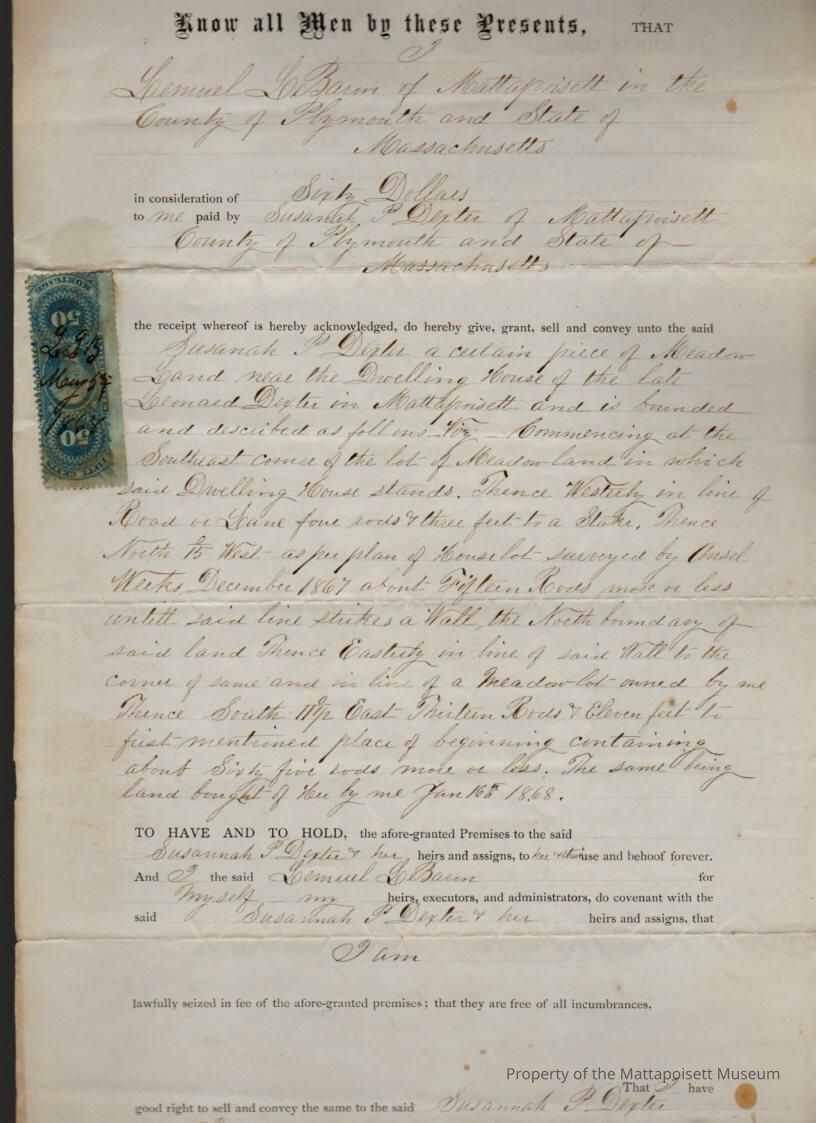 Know all Men by these Presents, THAT
I
Lemuel LeBaron of Mattapoisett in the
County of Plymouth and State of
Massachusetts
in consideration of Sixty Dollars
to me paid by Susanah P Dexter of Mattapoisett
County of Plymouth and State of
Massachusetts
the receipt whereof is hereby acknowledged, do hereby give, grant, sell and convey unto the said
Susanah P Dexter a certain piece of Meadow
Land near the Dwelling House of the late
Leonard Dexter in Mattapoisett and is bounded
and described as follows Viz - Commencing at the
Southeast corner of the lot of Meadow land in which
said Dwelling House stands. Thence Westerly in line of
Road or Lane four rods & three feet to a Stake. Thence
North West as per plan of House lot surveyed by Ansel
Weeks December 1867 about Fifteen Rods more or less
untill said line strikes a Wall, the North boundary of
said land Thence Easterly in line of said Wall to the
corner of same and in line of a Meadow lot owned by me
Thence South 11½ East Thirteen Rods & Eleven feet to
first mentioned place of beginning containing
about Sixty five rods more or less. The same being
land bought of Her by me Jan 16th 1868.
TO HAVE AND TO HOLD, the afore-granted Premises to the said
Susannah P Dexter & her heirs and assigns, to her & their use and behoof forever.
And I the said Lemuel LeBaron for
Myself my heirs, executors, and administrators, do covenant with the
said Susannah P Dexter & her heirs and assigns, that
I am
lawfully seized in fee of the afore-granted premises; that they are free of all incumbrances,
That I have
good right to sell and convey the same to the said Susannah P Dexter
50
May
1868
50
Property of the Mattapoisett Museum